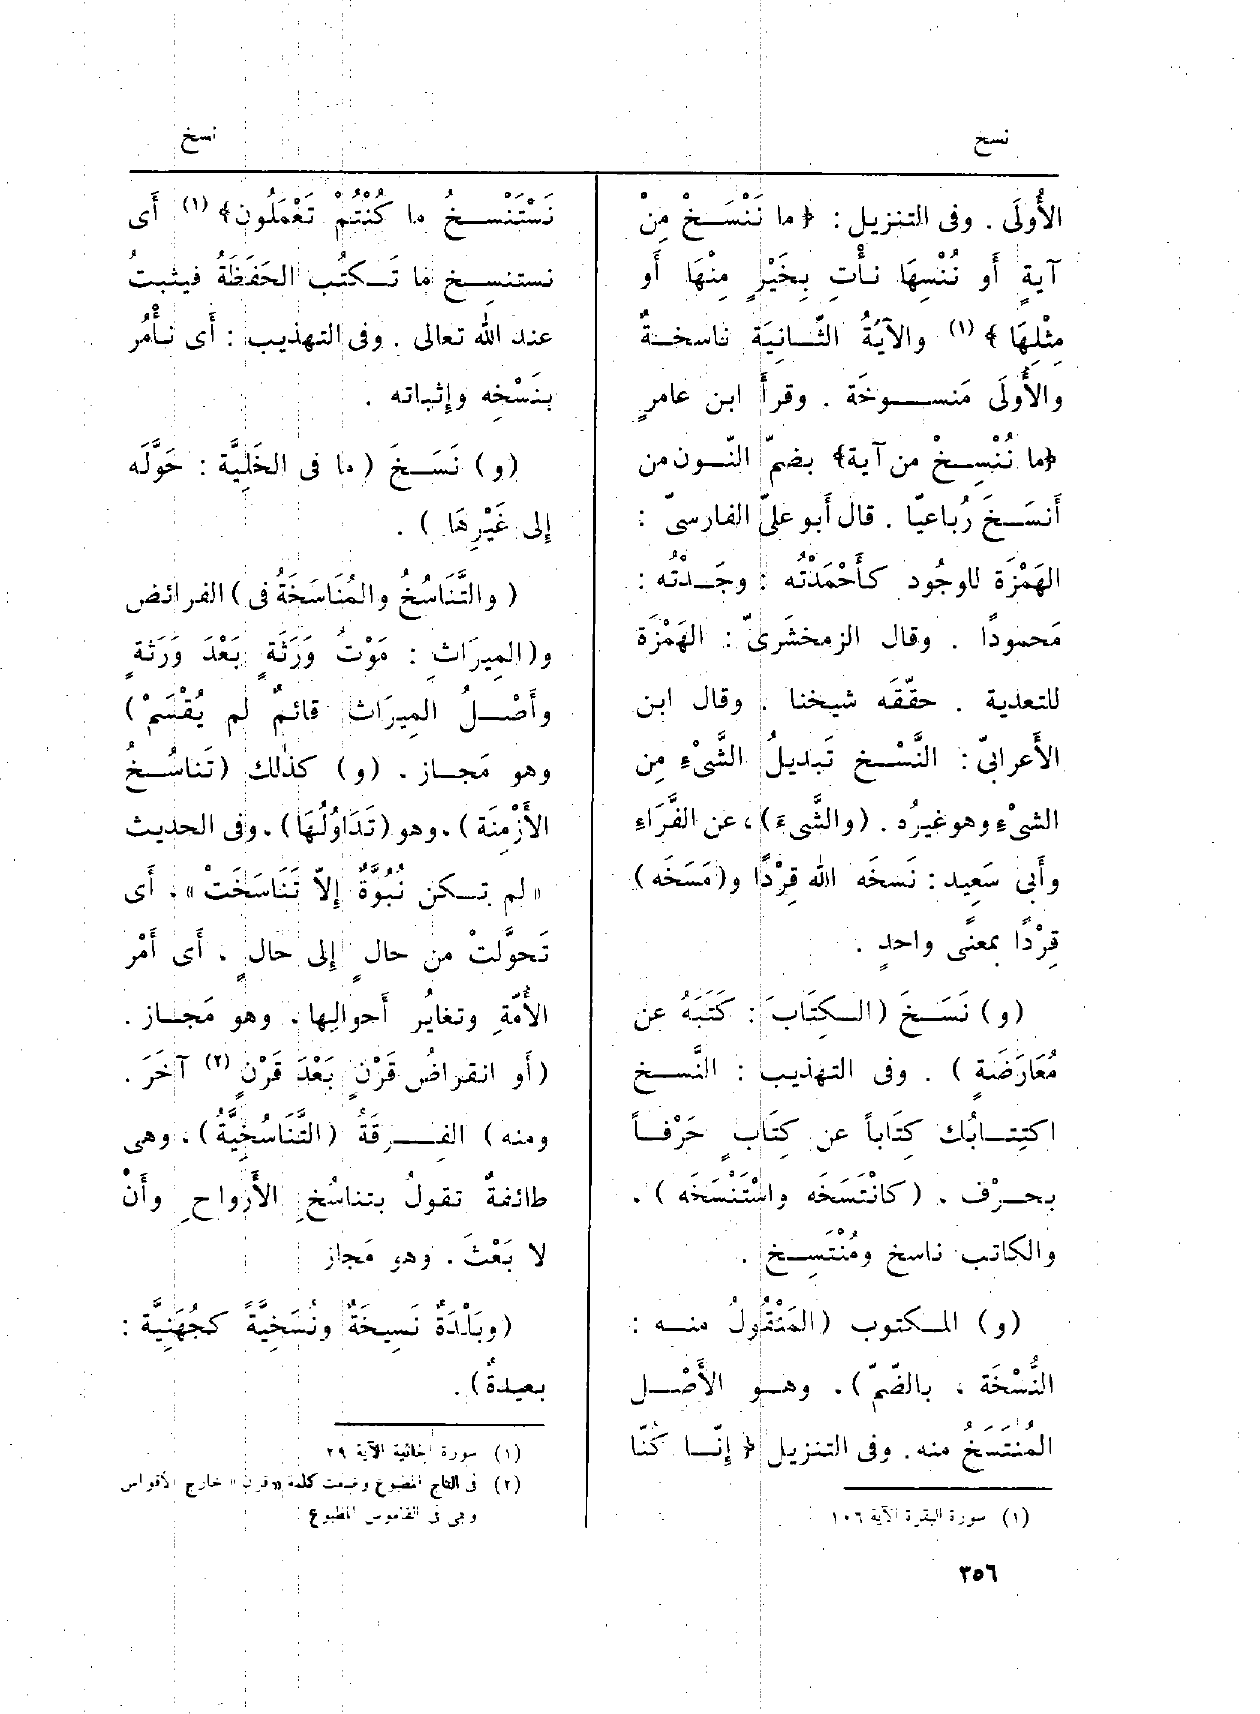 نسخ
نسخ
الأُولَى . وفى التنزيل : ﴿ ما نَنْسَـخْ مِنْ
آيةٍ أو نُنْسِهَا نـأْتِ بِخَيْرٍ مِنْهَا أو
مِثْلِهَا ﴾ (١) والآيَةُ الثَّـانِيَة ناسخـةٌ
والأُولَى مَنســوخَة . وقرأَ ابن عامرٍ
﴿ما نُنْسِـخْ من آية﴾ بضمّ النّـون من
أنسَـخَ رُباعيّا . قال أبو علىّ الفارسىّ :
الهَمْزَة للوجُود كـأَحْمَدْتُه : وجَـدْتُه :
مَحمودًا . وقال الزمخشَرىّ : الهَمْزَة
للتعدية . حقّقَه شيخنا . وقال ابن
الأَعرابىّ : النَّسْـخ تَبديلُ الشَّىْءِ مِن
الشىْءِ وهو غيرُه . (والشَّىءَ) ، عن الفَّرَاءِ
وأَبى سَعِيد : نَسخَه الله قِرْدًا و(مَسَخَه)
قِرْدًا بمعنًى واحدٍ .
(و) نَسَـخَ (الـكِتَابَ : كَتَبَهُ عن
مُعَارَضَةٍ ) . وفى التهذيب : النَّسـخ
اكتِتـابُك كِتَاباً عن كِتَابٍ حَرْفـاً
بحـرْف . (كانْتَسَخَه واسْتَنْسَخَه ) .
والكاتب ناسخ ومُنْتَسِـخ .
(و) المـكتوب (المَنْقُولُ منـه :
النُّسْخَة ، بالضّمّ) . وهـو الأَصْـل
المُنتَسَخُ منه . وفى التنزيل ﴿ إنّـا كُنّا
(١) سورة البقرة الآية ١٠٦
نَسْتَنْسـخُ ما كُنْتُمْ تَعْمَلُون﴾ (١) أى
نستنسِـخ ما تَـكتُب الحَفَظَة فيثبتُ
عند الله تعالى . وفى التهذيب : أى نـأْمُر
بنَسْخِه وإثباته .
(و) نَسَـخَ (ما فى الخَلِيَّة : حَوَّلَه
إلى غَيْرِهَا ) .
( والتَّنَاسُخ والمُنَاسَخَةُ فى ) الفرائض
و(المِيرَاثِ : مَوْتُ وَرَثَةٍ بَعْدَ وَرَثَةٍ
وأَصْـلُ المِيرَاث قائمٌ لم يُقْسَمْ)
وهو مَجـاز . (و) كذلك (تَناسُـخُ
الأَزْمِنَة) ، وهو (تَدَاوُلُهَا) . وفى الحديث
« لم تـكن نُبُوَّةٌ إلاّ تَنَاسَخَتْ » ، أى
تَحوَّلتْ من حالٍ إلى حالٍ ، أى أَمْر
الأُمّةِ وتغايُر أحوالِها . وهو مَجـاز .
(أو انقراضُ قَرْنٍ بَعْدَ قَرْنٍ (٢) آخَرَ .
ومنه) الفِــرقَةُ (التَّنَاسُخِيَّة) ، وهى
طائفةٌ تقولُ بتناسُخِ الأَرواحِ وأَنْ
لا بَعْثَ . وهو مَجاز
(وبَلْدَةٌ نَسِيخَةٌ ونُسَخِيَّةً كجُهَنِيَّة :
بعيدةٌ) .
(١) سورة الجاثية الآية ٢٩
(٢) فى التاج المطبوع وضعت كلمة « قرن » خارج الأقواس
وهى فى القاموس المطبوع
٣٥٦